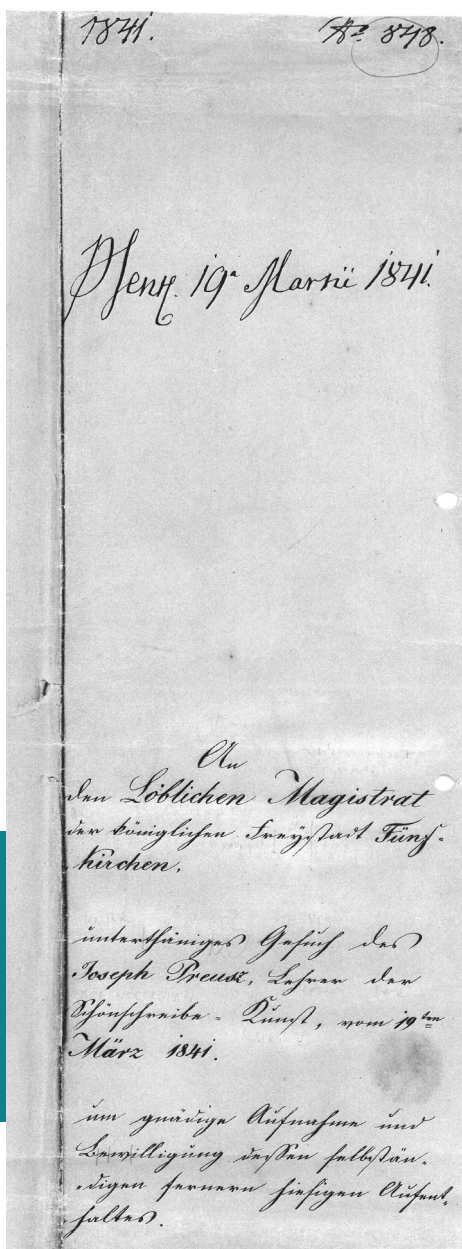 1841.
No 848.
19a Martii 1841.
An
den Löblichen Magistrat
der königlichen Freystadt Fünf-
kirchen.
unterthäniges Gesuch des
Joseph Preusz, Lehrer der
Schönschreibe-Kunst, vom 19ten
März 1841.
um gnädige Aufnahme und
Bewilligung dessen selbstän-
digen fernern hiesigen Aufent-
haltes.